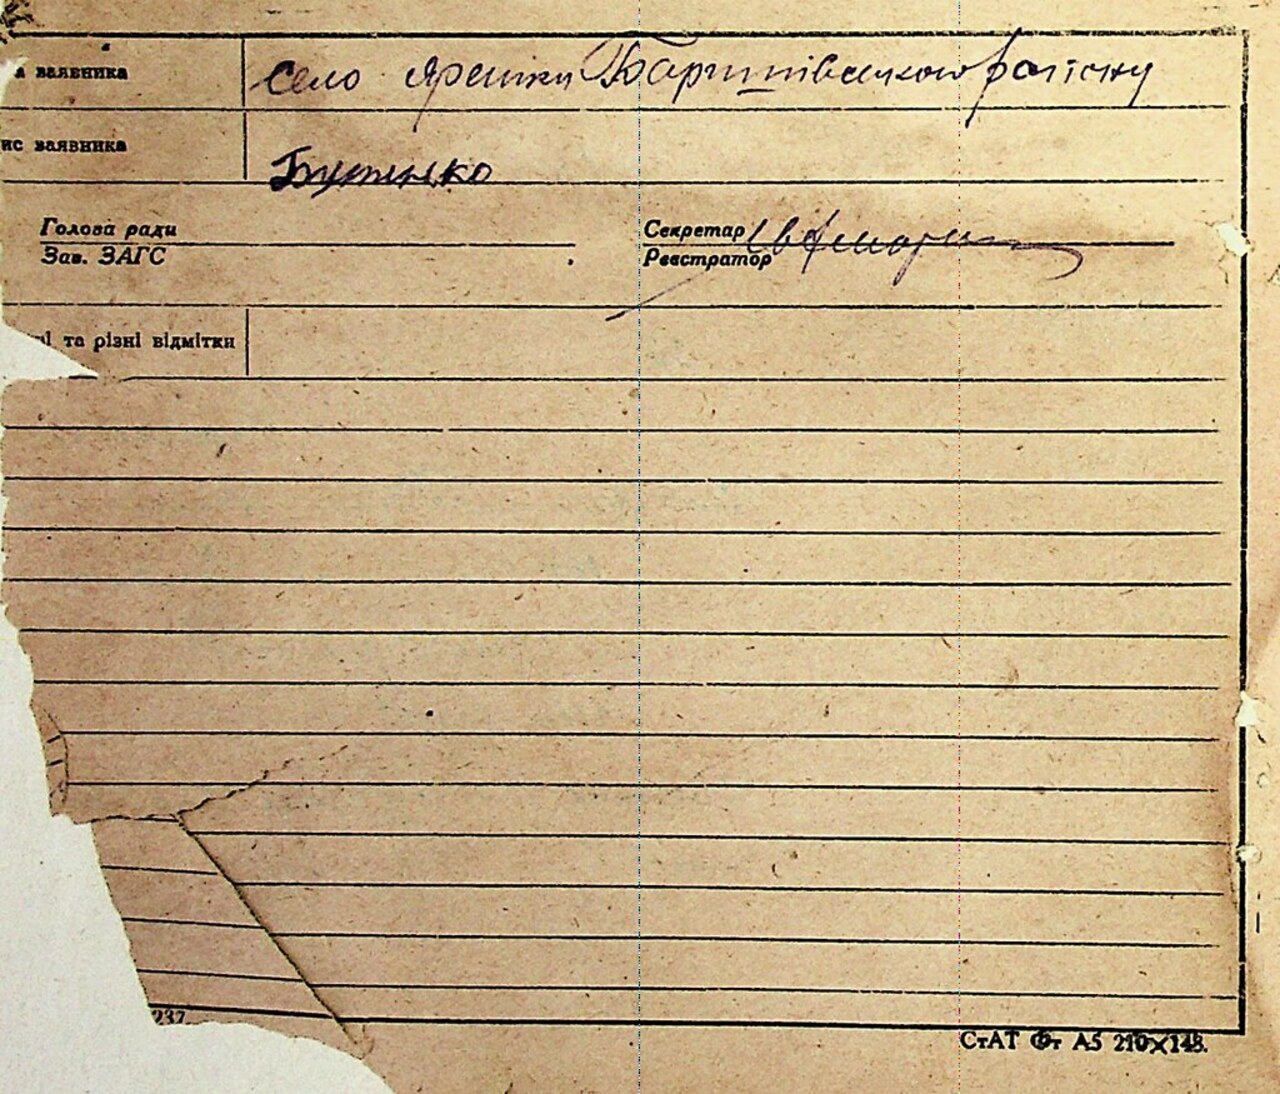 а заявника село Ярешки Баришівського району
ис заявника Бутенко
Голова ради Секретар
Зав. ЗАГС Реєстратор
ні та різні відмітки
237
СтАТ Фт А5 210×148.